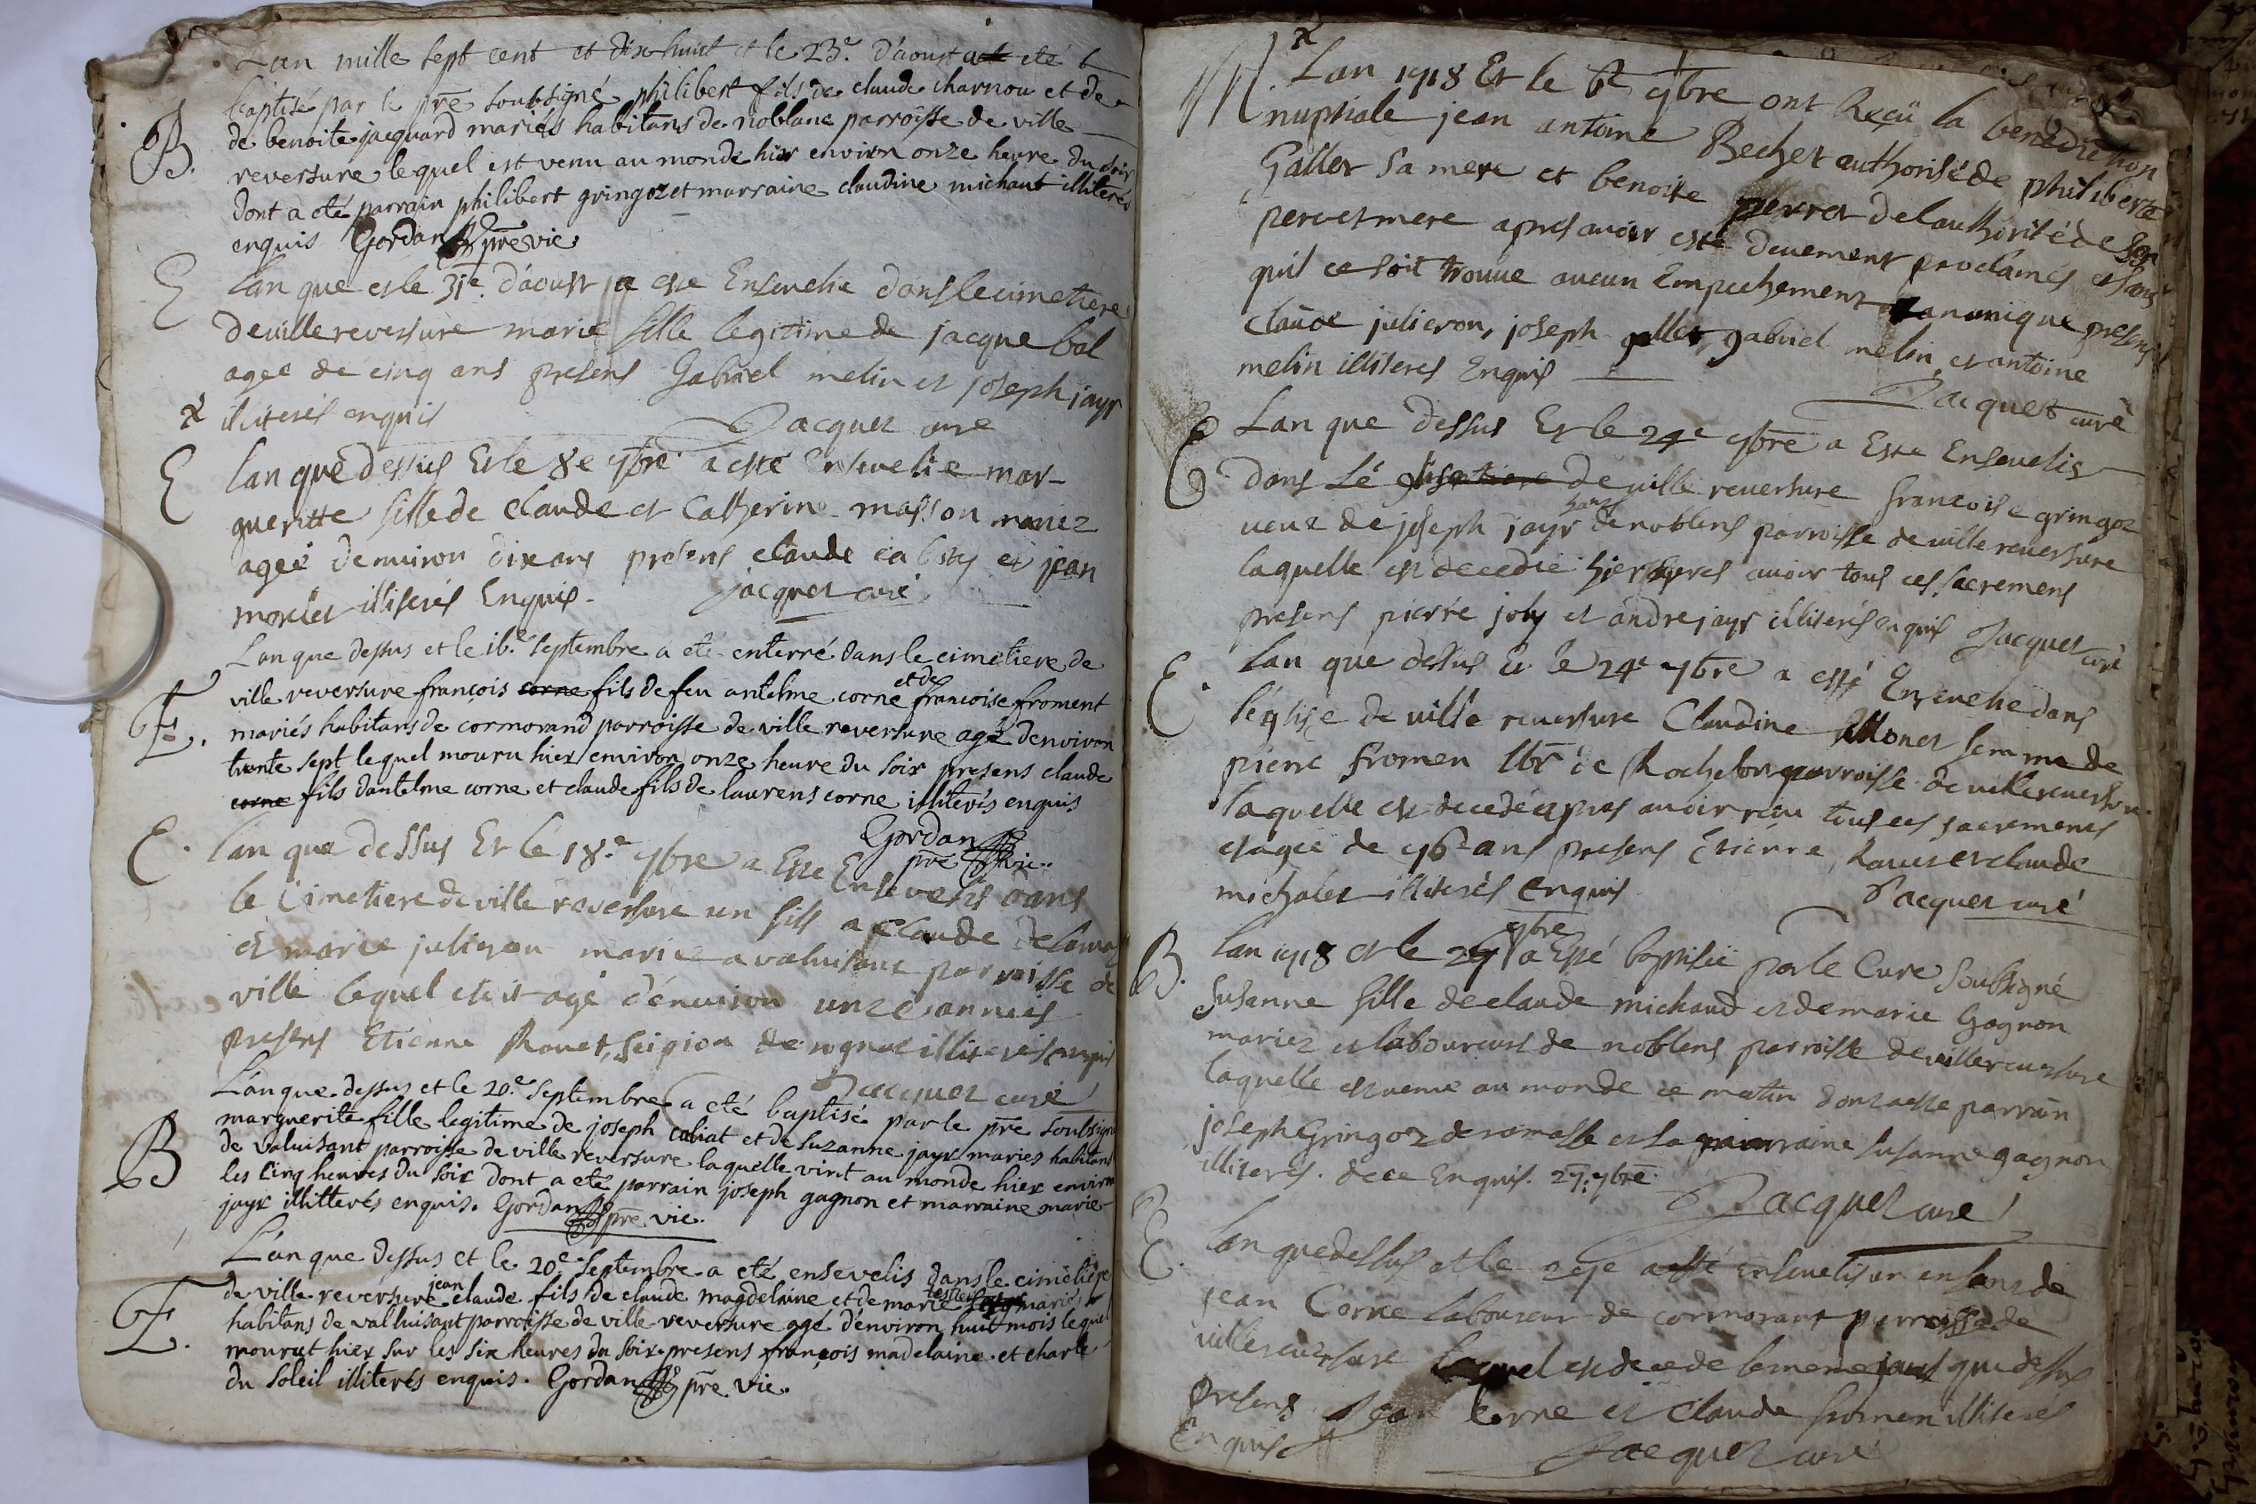 Lan mille sept cent et dix huict et le 23e. d'aoust a eté
B. baptisé par le pre soubsigné philibert fils de claude charnou et de
de benoite jacquard mariés habitans de noblans parroisse de ville
reversure lequel est venu au monde hier environ onze heure du soir
dont a eté parrain philibert gringoz et marraine claudine michaut illiterés
enquis Gordan pre vic
E lan que et le 31e d'aoust a esté Ensevelie dans le cimetiere
de ville reversure marie fille legitime de jacque bal
agee de cinq ans presens Gabriel melin et joseph jayr
illiterés enquis Jacquet curé
E lan que dessus et le 8e 7bre a esté ensevelie mar-
gueritte fille de claude et Catherine masson mariez
agee denviron dix ans presens claude et jean
illiterés Enquis. Jacquet curé
Lan que dessus et le 16e. septembre a eté enterré dans le cimetiere de
ville reversure françois corne fils de feu antelme corne et de francoise froment
E. mariés habitans de cormorand parroisse de ville reversure agé denviron
trante sept lequel mouru hier environ onze heure du soir presens claude
corne fils dantelme corne et claude fils de laurens corne illiterés enquis
Gordan pre vic.
E. lan que dessus Et le 18.e 7bre a Esté Ensevelis dans
le Cimetiere de ville reversure un fils a claude
et marie julieron marie a valuisant parroisse de
ville lequel etoit agé d'environ unze années
presens Etienne Rouet, scipion illiterés enquis
Jacquet curé
Lan que dessus et le 20.e septembre a eté baptisé par le pre soubsigné
B marguerite fille legitime de joseph caliat et de suzanne jayr mariés habitans
de valuisant parroisse de ville reversure laquelle vint au monde hier environ
les cinq heures du soir dont a eté parrain joseph gagnon et marraine marie
jayr illitterés enquis. Gordan pre vic.
L'an que dessus et le 20e. septembre a eté ensevelis dans le cimetiere
de ville reversure jean claude fils de claude magdelaine et de marie mariés
E. habitans de valluisant parroisse de ville reversure agé d'environ huit mois lequel
mourut hier sur les six heures du soir presens françois madelaine et charle
du soleil illiterés enquis. Gordan pre vic.
M. Lan 1718 Et le 6e 7bre ont Reçu la benediction
nuptiale jean antoine Bechet authorisé de philiberte
Gallet sa mere et benoite perret de lauthorité de son
pere et mere apres avoir esté deuement proclamés et sans
quil ce soit trouué aucun Empechement canonique presens
claude julieron, joseph gallet, gabriel melin, et antoine
melin illiterés Enquis
Jacquet curé
E Lan que dessus Et le 24e 7bre a Esté Ensevelis
dans Le de ville reversure francoise gringoz
veuve de joseph jayr de noblens parroisse de ville reversure
laquelle est decedée hier apres avoir tous ces sacremens
presens pierre joly et andre jayr illiterés enquis Jacquet curé
E. lan que dessus et le 24e 7bre a esté Ensevelie dans
l'église de ville reversure Claudine Monet femme de
pierre fromen lbr de Rochefort parroisse de ville reversure
laquelle est decedée apres avoir reçu tous ces sacremens
et agee de 76 ans presens Etienne Rouet et claude
michalet illiterés Enquis Jacquet curé
B. lan 1718 et le 27 7bre a Esté baptisée par le Curé Soubsigné
Susanne fille de claude michaud et de marie Gagnon
mariez et laboureurs de noblens parroisse de ville reversure
laquelle est venue au monde ce matin dont a esté parrain
joseph Gringoz de ramasse et la marraine susanne gagnon
illiterés. de ce Enquis. 27. 7bre.
Jacquet curé
E. lan que dessus et le a esté ensevelis un enfans de
jean Corne laboureur de cormorant parroisse de
ville reversure lequel est decedé le meme jour que dessus
presens jean Corne et claude fromen illiterés
Enquis Jacquet curé